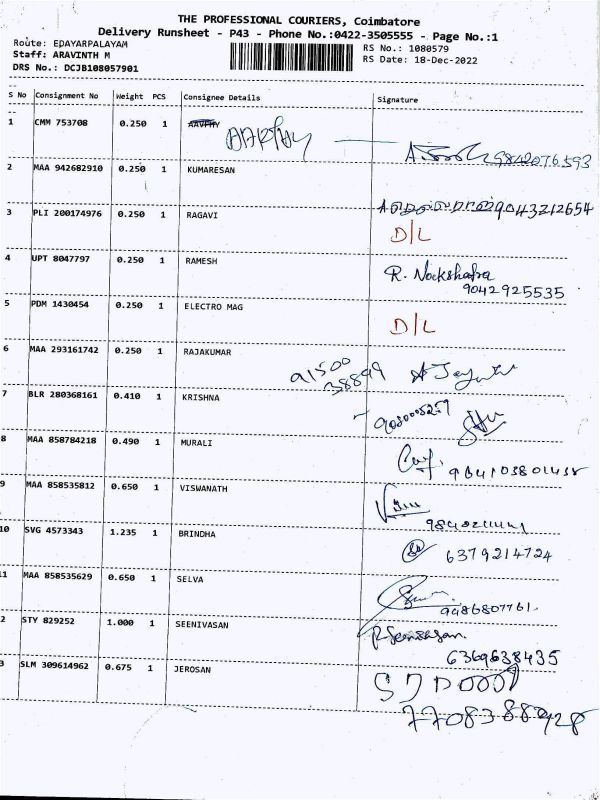 THE PROFESSIONAL COURIERS, Coimbatore
Delivery Runsheet - P43 - Phone No.:0422-3505555 - Page No.:1
Route: EDAYARPALAYAM
Staff: ARAVINTH M
DRS No.: DCJB108057901
RS No.: 1080579
RS Date: 18-Dec-2022
S No Consignment No Weight PCS Consignee Details Signature
1 CMM 753708 0.250 1 9842076593
2 MAA 942682910 0.250 1 KUMARESAN 9043212654
3 PLI 200174976 0.250 1 RAGAVI D/L
4 UPT 8047797 0.250 1 RAMESH R. 9042925535
5 PDM 1430454 0.250 1 ELECTRO MAG D/L
6 MAA 293161742 0.250 1 RAJAKUMAR 91500 38899
7 BLR 280368161 0.410 1 KRISHNA
8 MAA 858784218 0.490 1 MURALI
9 MAA 858535812 0.650 1 VISWANATH
10 SVG 4573343 1.235 1 BRINDHA 6379214724
11 MAA 858535629 0.650 1 SELVA 9486807761
2 STY 829252 1.000 1 SEENIVASAN 6369638435
3 SLM 309614962 0.675 1 JEROSAN